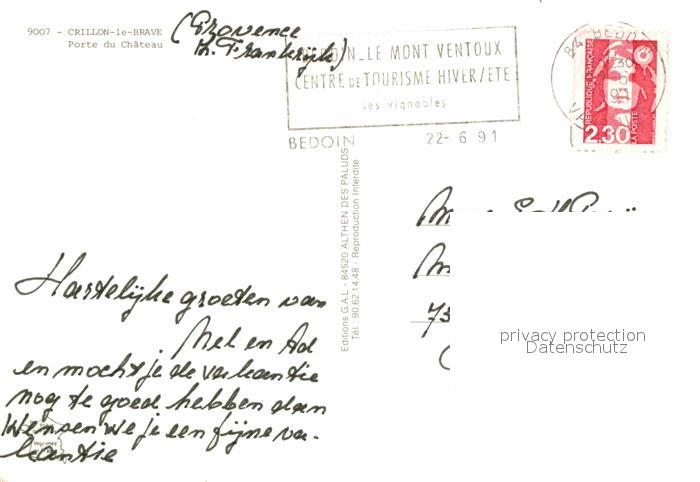 9007 - CRILLON-le-BRAVE
Porte du Château
(Provence
in Frankrijk)
BEDOIN_LE MONT VENTOUX
CENTRE DE TOURISME HIVER/ETE
ses vignobles
BEDOIN 22-6 91
84 BEDOIN
REPUBLIQUE FRANÇAISE
2,30
LA POSTE
Editions G.A.L. - 84520 ALTHEN DES PALUDS
Tél.: 90.62.14.48 - Reproduction Interdite
Hartelijke groeten van
Nel en Ad
en mocht je de vakantie
nog te goed hebben dan
Wensen we je een fijne va-
kantie
privacy protection
Datenschutz